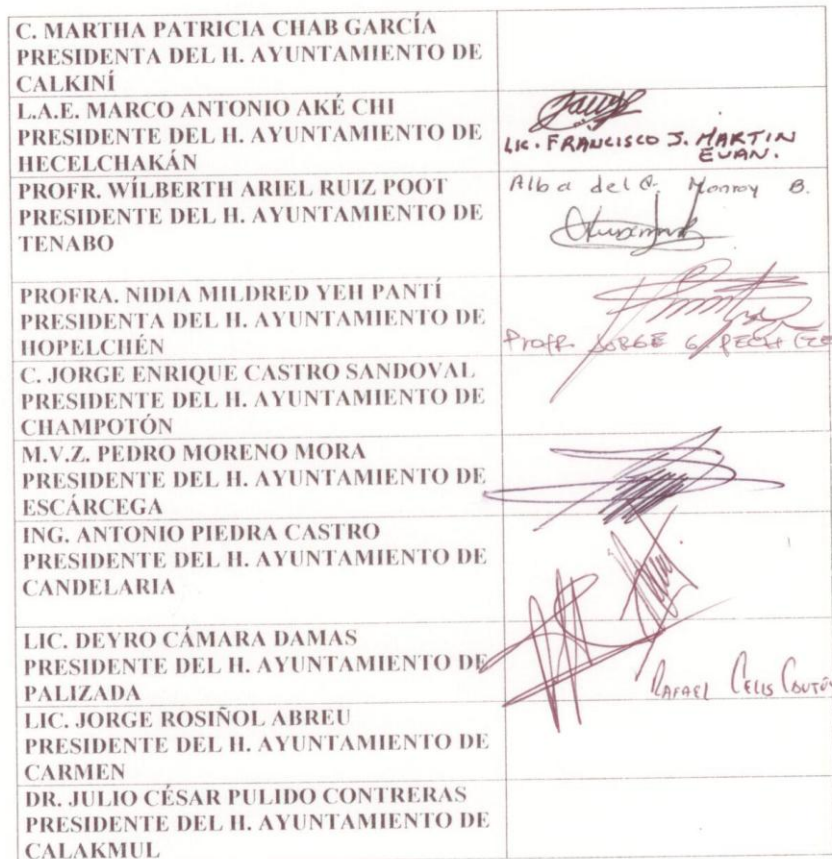 C. MARTHA PATRICIA CHAB GARCÍA
PRESIDENTA DEL H. AYUNTAMIENTO DE
CALKINÍ
L.A.E. MARCO ANTONIO AKÉ CHI
PRESIDENTE DEL H. AYUNTAMIENTO DE
HECELCHAKÁN
LIC. FRANCISCO J. MARTIN
EUAN.
PROFR. WÍLBERTH ARIEL RUIZ POOT
PRESIDENTE DEL H. AYUNTAMIENTO DE
TENABO
Alba del Monroy B.
PROFRA. NIDIA MILDRED YEH PANTÍ
PRESIDENTA DEL H. AYUNTAMIENTO DE
HOPELCHÉN
Profr. JORGE G PECH
C. JORGE ENRIQUE CASTRO SANDOVAL
PRESIDENTE DEL H. AYUNTAMIENTO DE
CHAMPOTÓN
M.V.Z. PEDRO MORENO MORA
PRESIDENTE DEL H. AYUNTAMIENTO DE
ESCÁRCEGA
ING. ANTONIO PIEDRA CASTRO
PRESIDENTE DEL H. AYUNTAMIENTO DE
CANDELARIA
LIC. DEYRO CÁMARA DAMAS
PRESIDENTE DEL H. AYUNTAMIENTO DE
PALIZADA
RAFAEL CELIS
LIC. JORGE ROSIÑOL ABREU
PRESIDENTE DEL H. AYUNTAMIENTO DE
CARMEN
DR. JULIO CÉSAR PULIDO CONTRERAS
PRESIDENTE DEL H. AYUNTAMIENTO DE
CALAKMUL